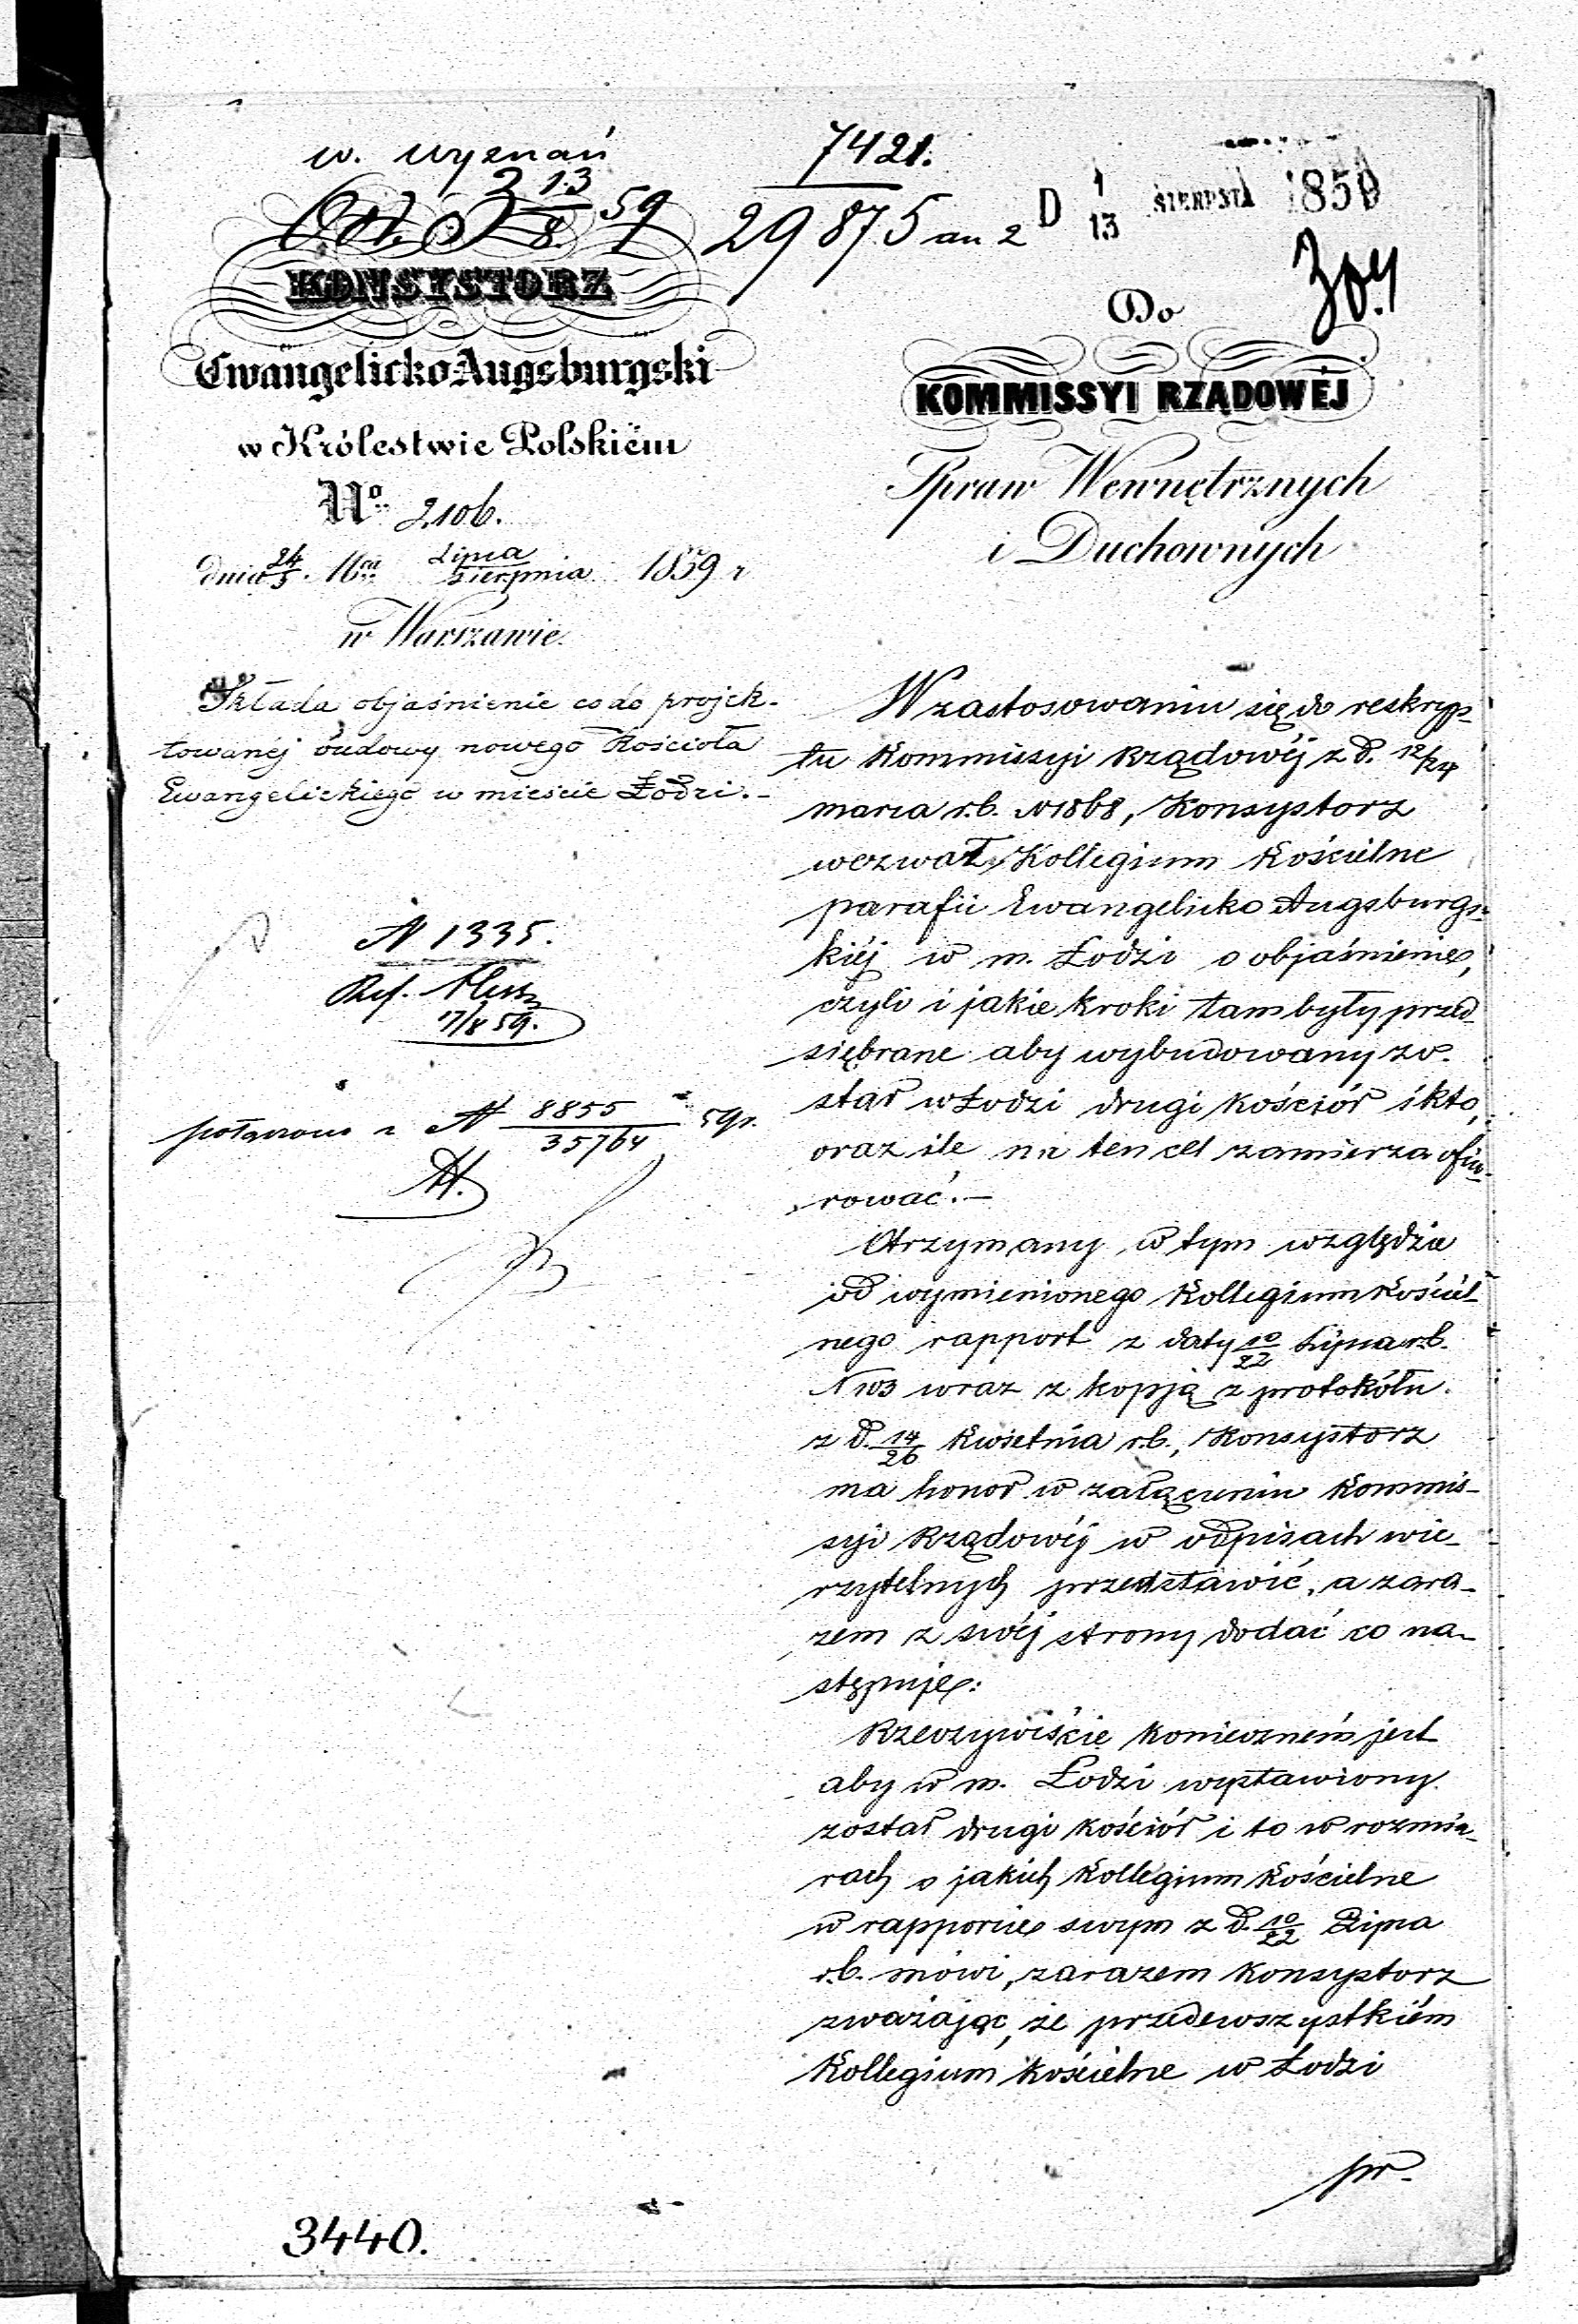 w. wyznań
13
8. 59
7421.
29875 an 2
D 1
13 SIERPNIA 1859
KONSYSTORZ
Ewangelicko-Augsburgski
w Królestwie Polskiém
No 2106.
dnia 24/5 Mca Lipca/Sierpnia 1859 r
w Warszawie.
Składa objaśnienie co do projek-
towanéj budowy nowego Kościoła
Ewangelickiego w mieście Łodzi.-
N 1335.
Ref.
17/8 59.
połączono z N 8855/35764 59r.
Do
KOMMISSYI RZĄDOWÉJ
Spraw Wewnętrznych
i Duchownych
W zastosowaniu się do reskryp-
tu Kommissyi Rządowéj z d. 12/24
marca r.b. N 1868, Konsystorz
wezwał Kollegium Kościelne
parafii Ewangelicko Augsburgs-
kiéj w m. Łodzi o objaśnienie,
czyli i jakie kroki tam były przed-
sięбrane aby wybudowany zo-
stał w Łodzi drugi kościół i kto,
oraz ile na ten cel zamierza ofia-
rować.-
Otrzymany w tym względzie
od wymienionego Kollegium Kościel-
nego rapport z daty 10/22 Lipca r.b.
N 103 wraz z kopją z protokółu
z d. 14/26 Kwietnia r.b., Konsystorz
ma honor w załączeniu Kommis-
syi Rządowéj w odpisach wie-
rzytelnych przedstawić, a zara-
zem z swéj strony dodać co na-
stępuje:
Rzeczywiście koniecznem jest
aby w m. Łodzi wystawiony
został drugi kościół i to w rozmia-
rach o jakich Kollegium Kościelne
w rapporcie swym z d. 10/22 Lipca
r.b. mówi, zarazem Konsystorz
zważając, że przedewszystkiém
Kollegium kościelne w Łodzi
pr-
3440.